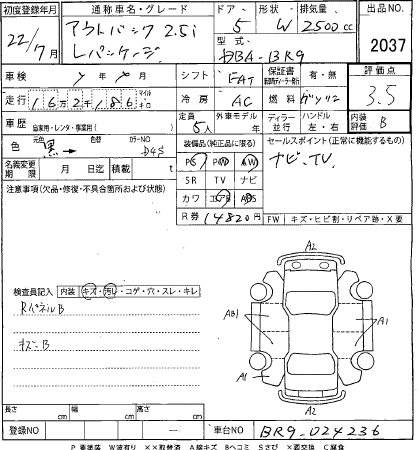 初度登録年月 通称車名・グレード ドア 形状 排気量 出品NO
22/7月 アウトバック 2.5i Lパッケージ 5 W 2500cc 2037
型式 DBA-BR9
車検 年 月 シフト FAT 保証書 有・無 評価点 3.5
走行 162,186 マイル キロ 冷房 AC 燃料 ガソリン
車歴 自家用・レンタ・事業用( ) 定員 5人 外車モデル年 ディーラー 並行 ハンドル 左・右 内装評価 B
色 元色 黒→ カラーNO D4S 装備品(純正品に限る) セールスポイント(正常に機能するもの)
PS PW AW ナビ・TV
名義変更期限 月 日迄 積載 t SR TV ナビ
注意事項(欠品・修復・不具合箇所および状態) カワ エアB ABS
R券 14820円 FW キズ・ヒビ割・リペア跡・X要
検査員記入 内装 キズ・汚レ・コゲ・穴・スレ・キレ
RパネルB
キズ・B
A2
AB1
A1
A1
A2
長さ cm 幅 cm 高さ cm
登録NO 車台NO BR9-024236
P 要塗装 W波有り ××取替済 A線キズ Bヘコミ Sさび ×要交換 C腐食